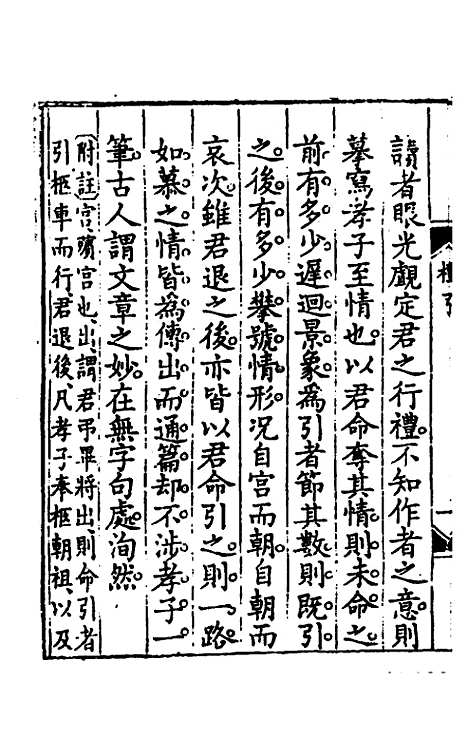 讀者眼光覷定君之行禮。不知作者之意。則
摹寫孝子至情也。以君命奪其情。則未命之
前有多少遲迴景象。爲引者節其數。則既引
之後有多少攀號情形。况自宫而朝。自朝而
哀次。雖君退之後。亦皆以君命引之。則一路
如慕之情皆為傳出。而通篇却不涉孝子一
筆。古人謂文章之妙。在無字句處。洵然。
附註宫殯宫也、出、謂君弔畢將出、則命引者
引柩車而行、君退後、凡孝子奉柩朝祖、以及
檀弓
一